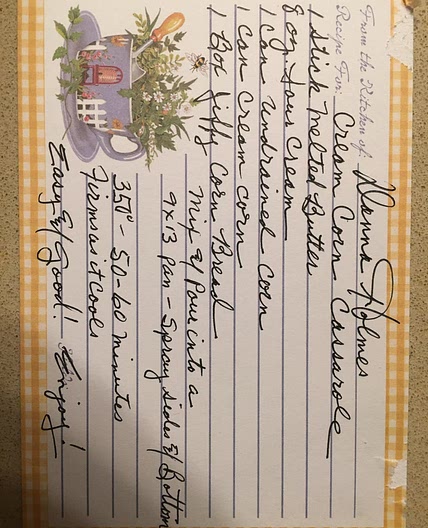 From the Kitchen of: Nanna Holmes
Recipe For: Cream Corn Cassarole
1 Stick melted Butter
8 oz Sour Cream
1 Can undrained corn
1 Can Cream corn
1 Box Jiffy Corn Bread
Mix & Pour into a
9x13 Pan - Spray sides & Bottom
350° - 50-60 minutes
Firms as it cools
Easy & Good! Enjoy!